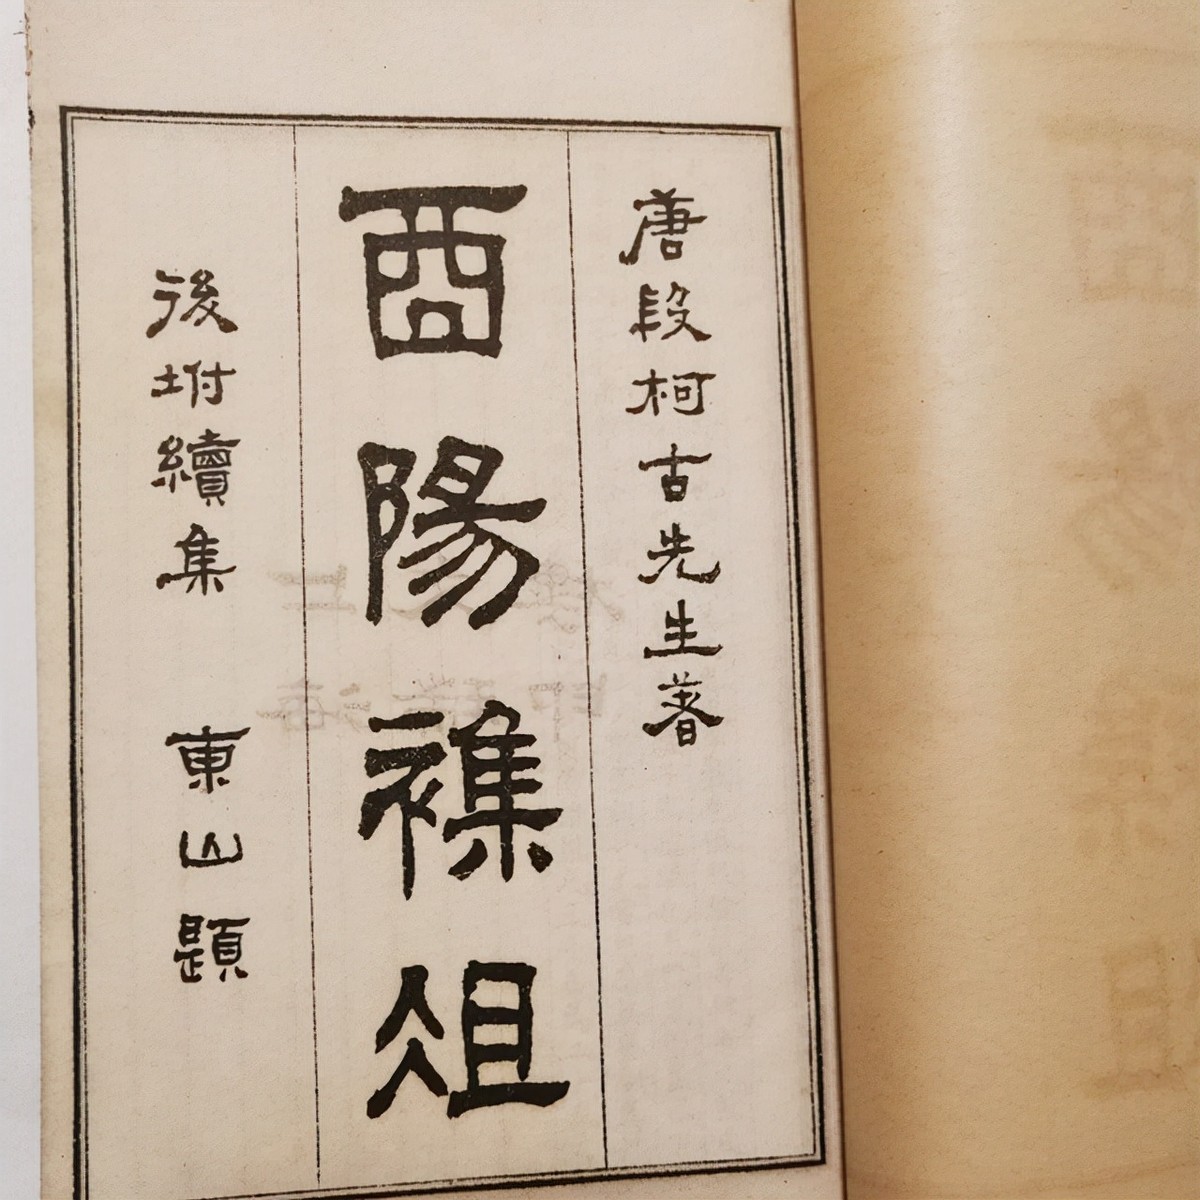 唐段柯古先生著
酉陽襍俎
後坿續集 東山題